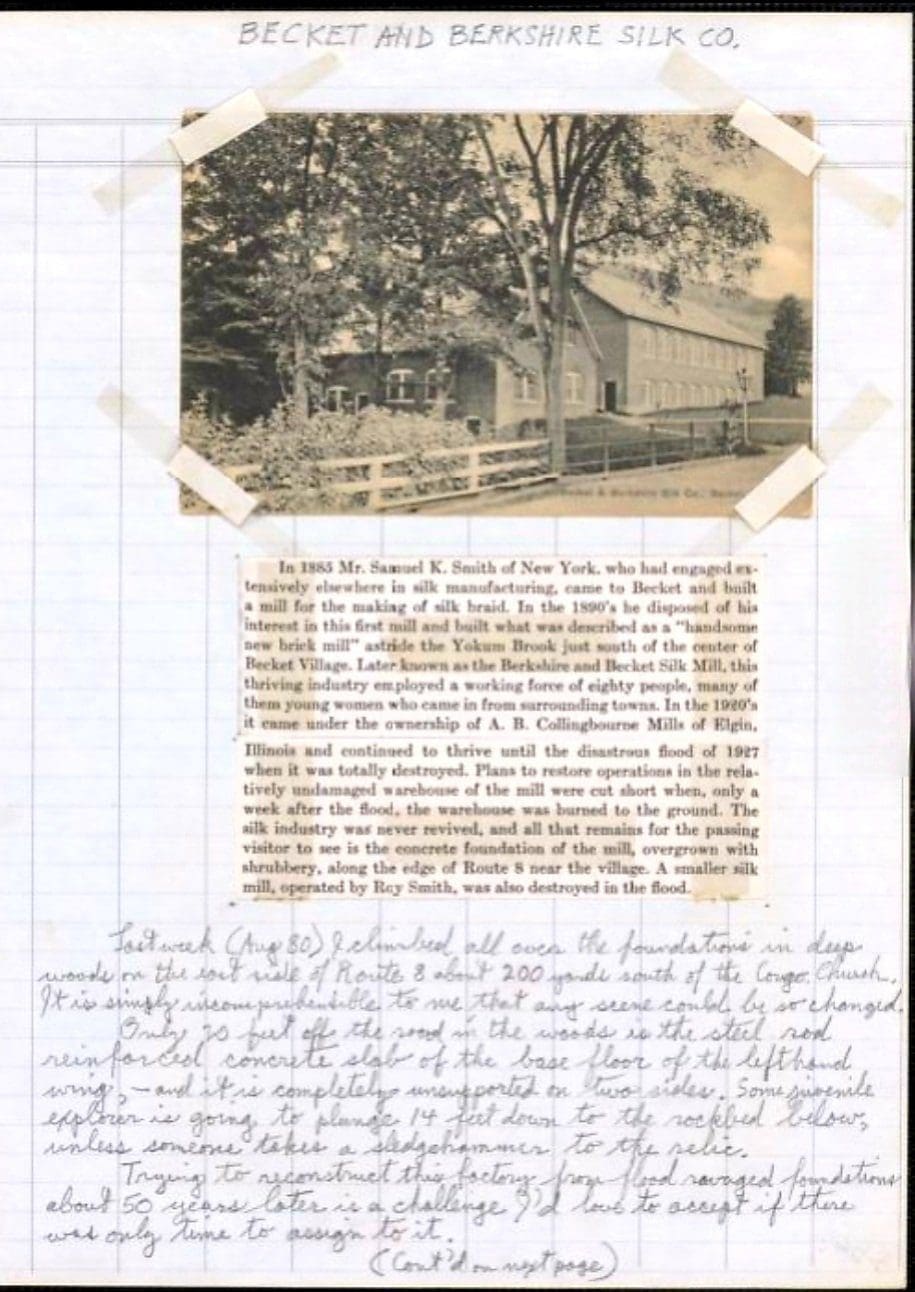 BECKET AND BERKSHIRE SILK CO.
Becket & Berkshire Silk Co., Becket
In 1885 Mr. Samuel K. Smith of New York, who had engaged ex-
tensively elsewhere in silk manufacturing, came to Becket and built
a mill for the making of silk braid. In the 1890's he disposed of his
interest in this first mill and built what was described as a "handsome
new brick mill" astride the Yokum Brook just south of the center of
Becket Village. Later known as the Berkshire and Becket Silk Mill, this
thriving industry employed a working force of eighty people, many of
them young women who came in from surrounding towns. In the 1920's
it came under the ownership of A. B. Collingbourne Mills of Elgin,
Illinois and continued to thrive until the disastrous flood of 1927
when it was totally destroyed. Plans to restore operations in the rela-
tively undamaged warehouse of the mill were cut short when, only a
week after the flood, the warehouse was burned to the ground. The
silk industry was never revived, and all that remains for the passing
visitor to see is the concrete foundation of the mill, overgrown with
shrubbery, along the edge of Route 8 near the village. A smaller silk
mill, operated by Roy Smith, was also destroyed in the flood.
Last week (Aug 80) I climbed all over the foundations in deep
woods on the east side of Route 8 about 200 yards south of the Congo. Church.
It is simply incomprehensible to me that any scene could be so changed.
Only 20 feet off the road in the woods is the steel rod
reinforced concrete slab of the base floor of the lefthand
wing, – and it is completely unsupported on two sides. Some juvenile
explorer is going to plunge 14 feet down to the rockbed below,
unless someone takes a sledgehammer to the relic.
Trying to reconstruct this factory from flood ravaged foundations
about 50 years later is a challenge I'd love to accept if there
was only time to assign to it.
(Cont'd on next page)